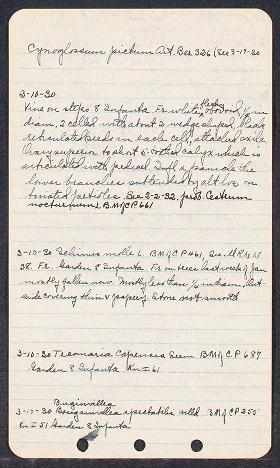 Cynoglossum pictum Ait. Bee 326 (See 3-19-30
3-10-30
Vine on steps 8 Infanta. Fr. white, fleshy, obovoid, ½ in
diam, 2 celled with about 2 wedge shaped, black
reticulated seeds in each cell, attached axile
Ovary superior to short 5-toothed calyx which is
articulated with pedicel. Infl. a panicle the
lower branches subtended by alt. lvs. on
petioles See 3-2-32. Cestrum
nocturnum L. BM&CP 661
3-10-30 Schinus molle L BM&CP 461, See
38. Fr. Garden 8 Infanta. Fr. on trees last week of Jan
mostly fallen now. Mostly less than ¼ in diam, but
side covering thin & papery. Stone not smooth
3-10-30 Tecomaria Capensis Seem BM&C.P 687
Garden 8 Infanta Kn I 61
Buginvillea
3-10-30 Bougainvillea spectabilis willd BM&CP 255
Kn I 51 Garden 8 Infanta